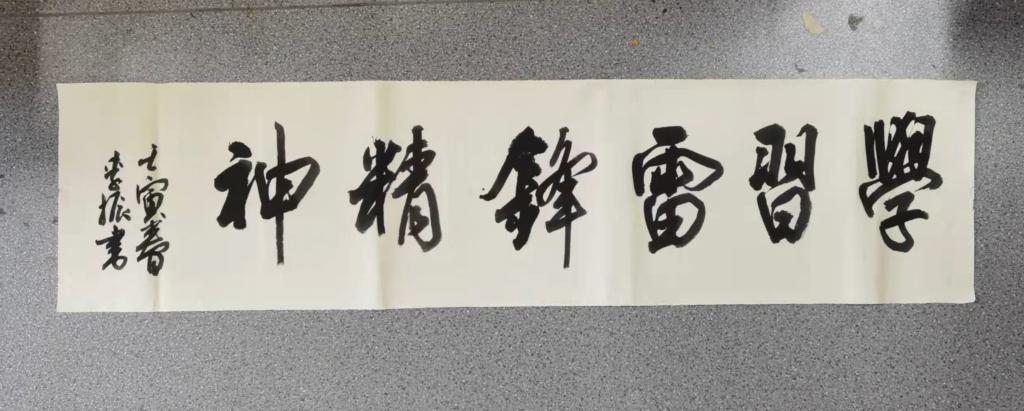 學習雷鋒精神
壬寅春
李振書